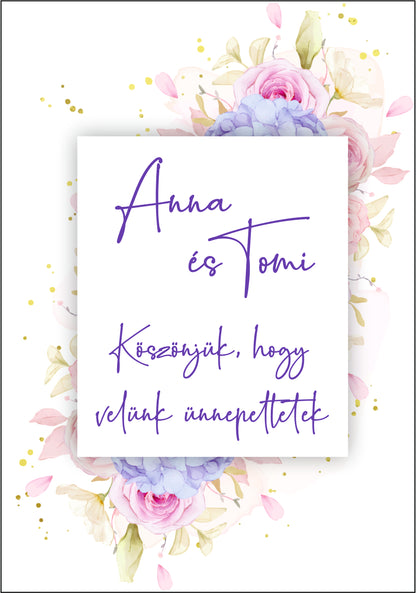 Anna
és Tomi
Köszönjük, hogy
velünk ünnepeltetek